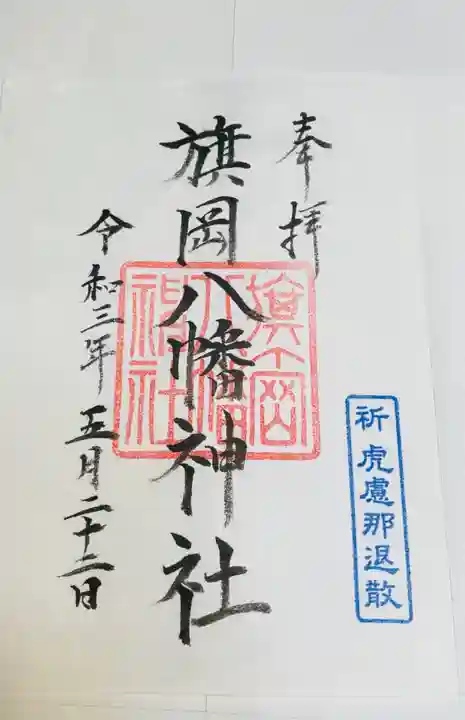 奉拝
旗岡八幡神社
令和三年五月二十二日
祈 虎慮那退散